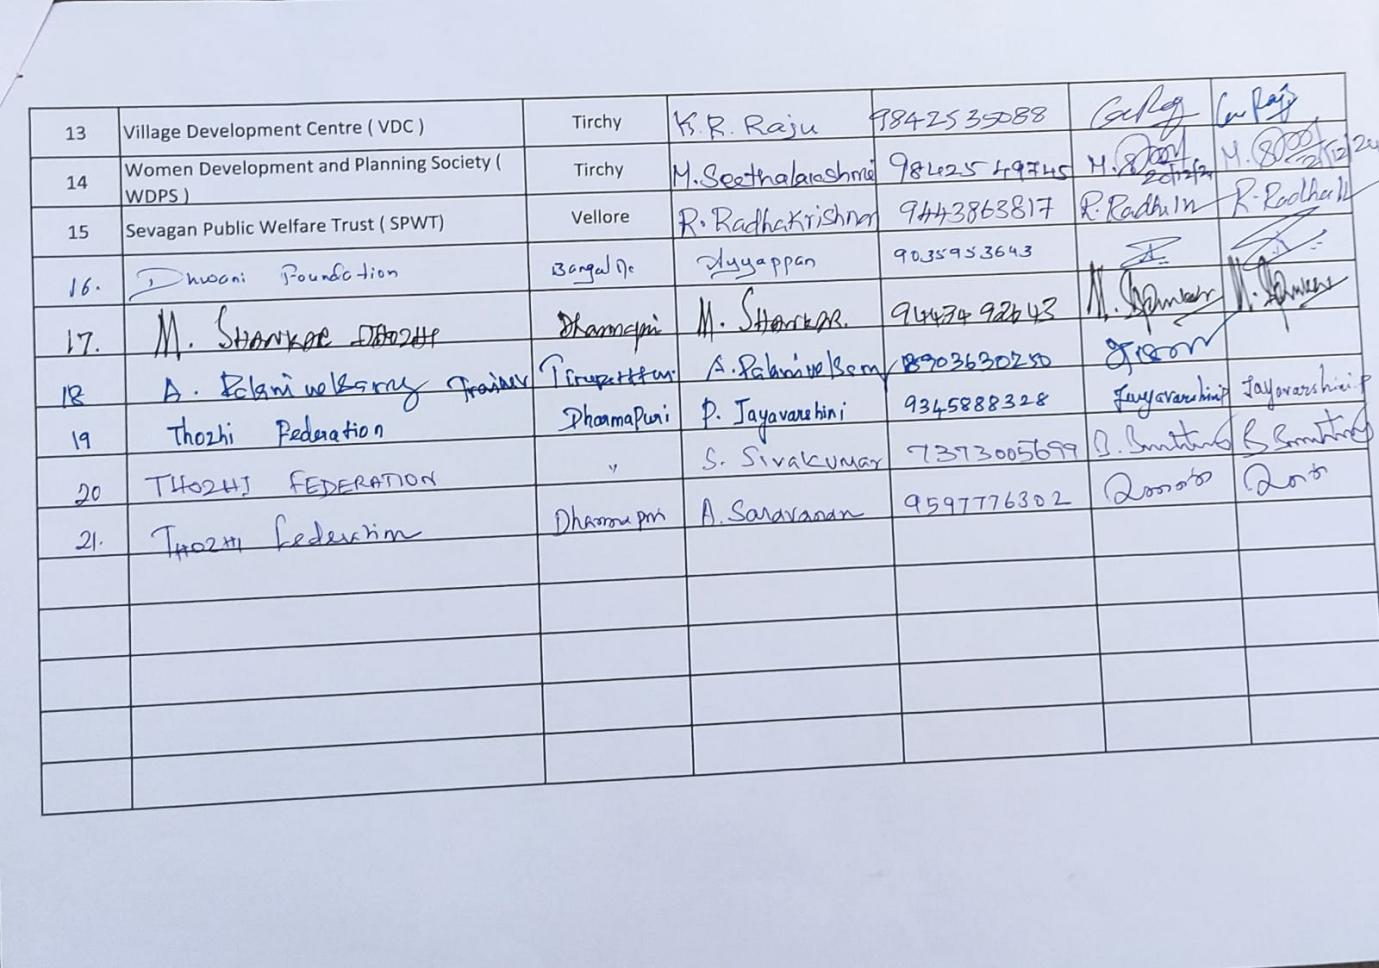 13 Village Development Centre ( VDC ) Tirchy K.R. Raju 9842535088
14 Women Development and Planning Society ( WDPS ) Tirchy M. Seethalakshmi 98425 49745 M.
15 Sevagan Public Welfare Trust ( SPWT) Vellore R. Radhakrishnan 9443863817 R. Radha
16. Dhwani Foundation Ayyappan 9035953643
17. M. SHANKAR THOZHI Dharmapuri M. SHANKAR. 9443492643 M. M.
18 A. Palanivelsamy Trainer Tirupatthur A. Palanivelsamy 8903630250
19 Thozhi Federation DharmaPuri P. Jayavarshini 9345888328 Jayavarshini P Jayavarshini P
20 THOZHI FEDERATION " S. Sivakumar 7373005699
21. THOZHI Federation Dharmapuri A. Saravanan 9597776302